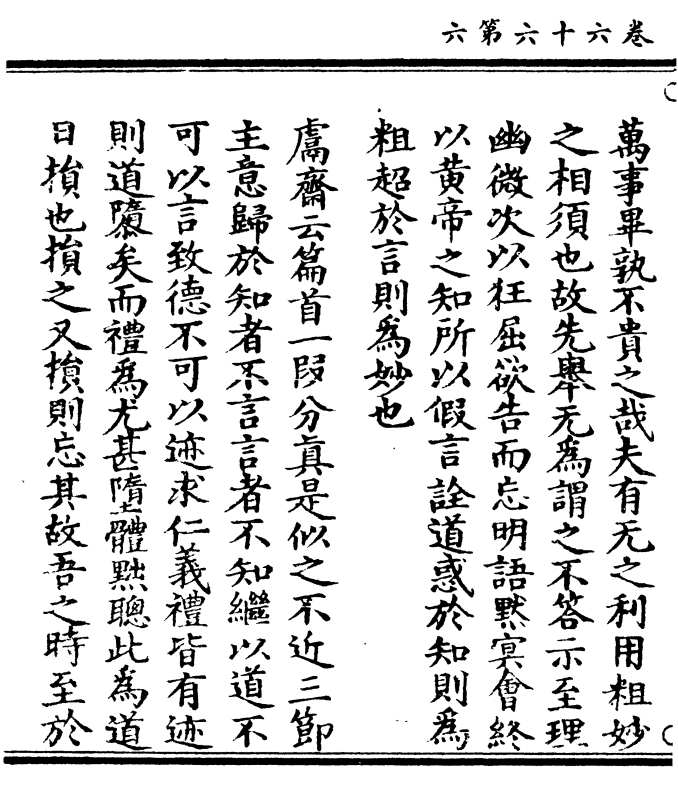 卷六十六第六
萬事畢孰不貴之哉夫有无之利用粗妙
之相須也故先舉无為謂之不答示至理
幽微次以狂屈欲告而忘明語默冥會終
以黃帝之知所以假言詮道惑於知則為
粗超於言則為妙也
鬳齋云篇首一段分真是似之不近三節
主意歸於知者不言言者不知繼以道不
可以言致德不可以迹求仁義禮皆有迹
則道隳矣而禮為尤甚墮體黜聰此為道
日損也損之又損則忘其故吾之時至於